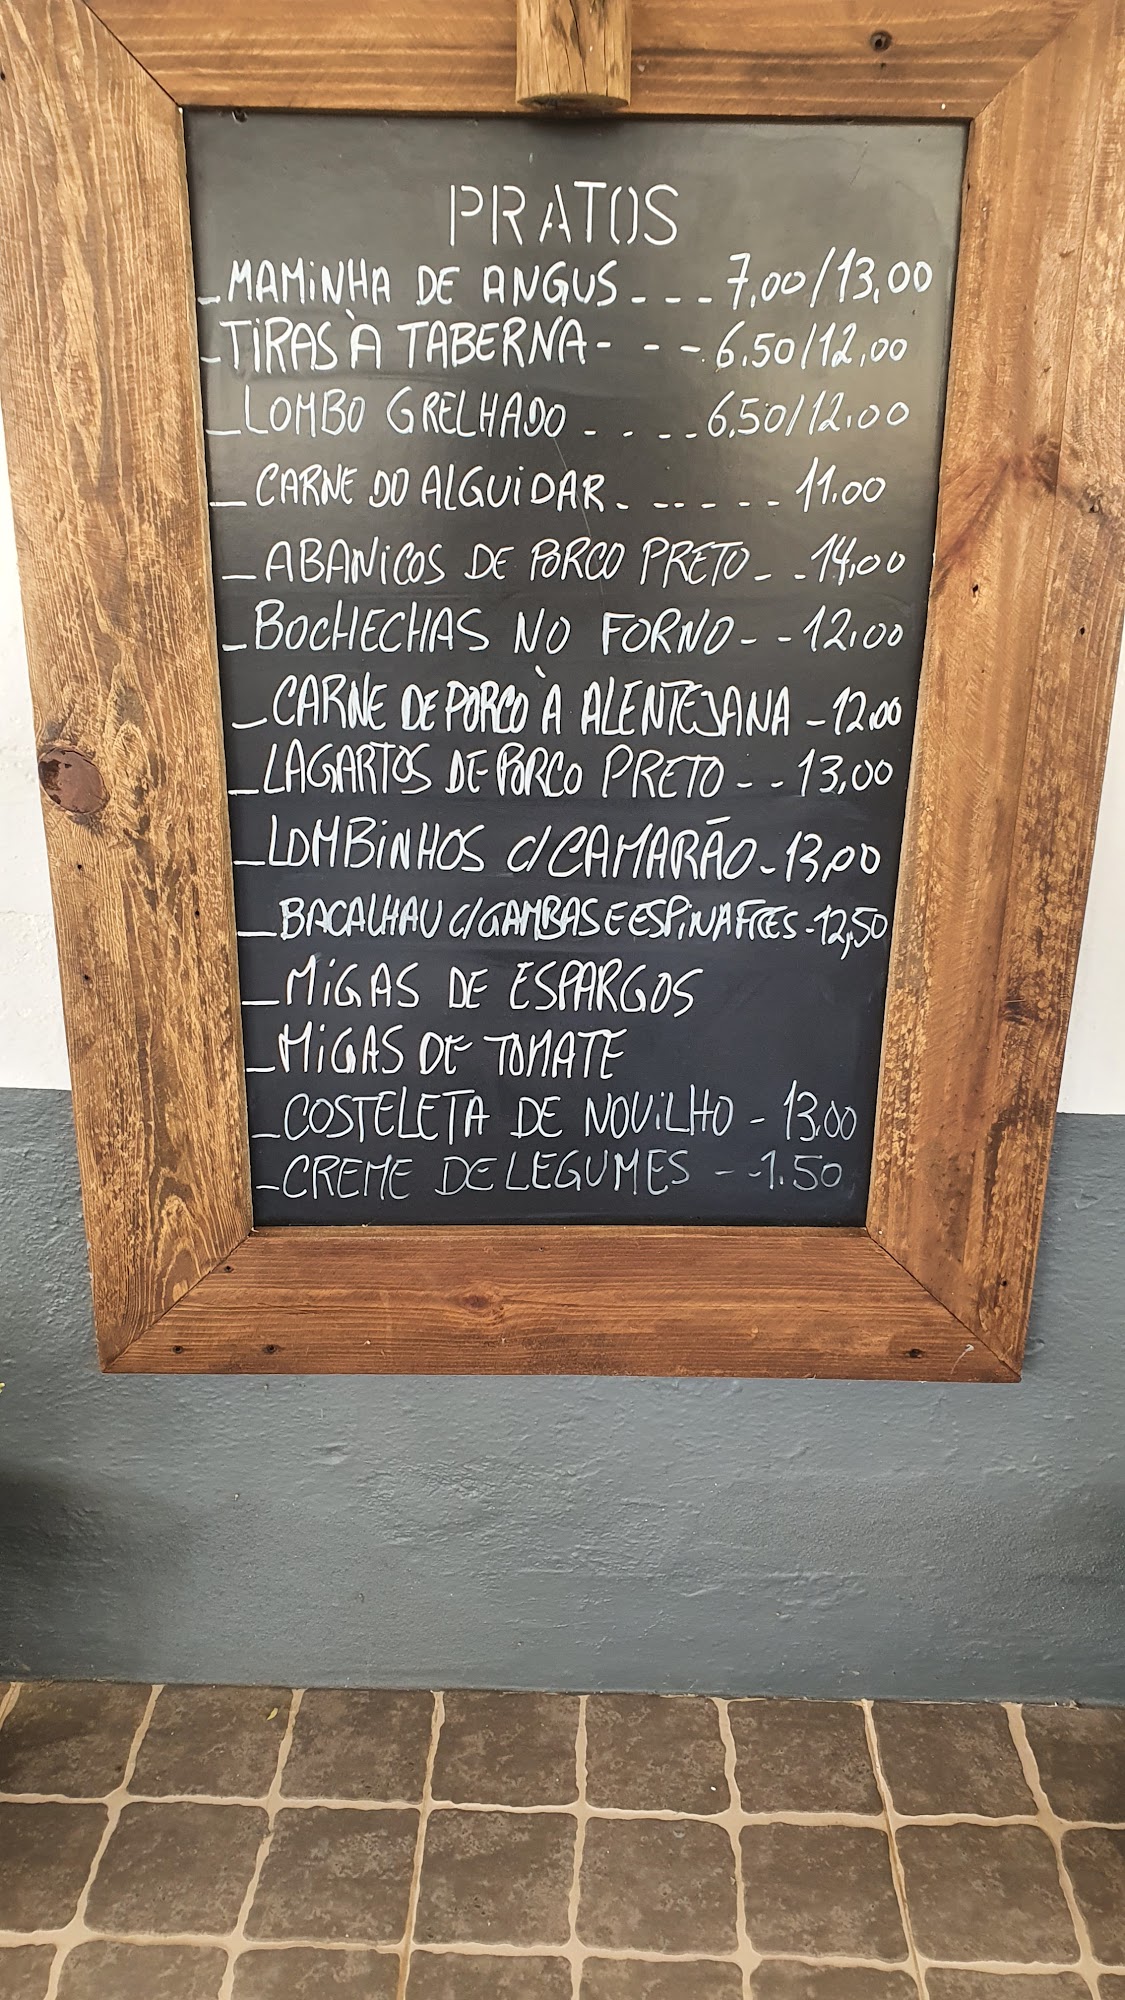 PRATOS
_MAMINHA DE ANGUS - - - 7,00/13,00
_TIRAS À TABERNA - - - 6.50/12,00
_LOMBO GRELHADO - - - - 6,50/12,00
_CARNE DO ALGUIDAR - - - - - - 11.00
_ABANICOS DE PORCO PRETO - - 14,00
_BOCHECHAS NO FORNO - - 12,00
_CARNE DE PORCO À ALENTEJANA - 12,00
_LAGARTOS DE PORCO PRETO - - 13,00
_LOMBINHOS C/CAMARÃO - 13,00
_BACALHAU C/GAMBAS E ESPINAFRES - 12,50
_MIGAS DE ESPARGOS
_MIGAS DE TOMATE
_COSTELETA DE NOVILHO - 13.00
_CREME DE LEGUMES - - 1.50